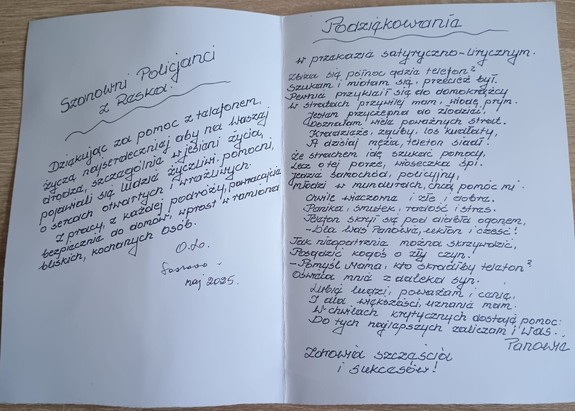 Szanowni Policjanci
z Raska.
Dziękując za pomoc z telefonem,
życzę najserdeczniej aby na Waszej
drodze, szczególnie w jesieni życia,
pojawiali się ludzie życzliwi pomocni,
o sercach otwartych i wrażliwych.
Z pracy, z każdej podróży, powracajcie
bezpiecznie do domów, wprost w ramiona
bliskich, kochanych osób.
O.Lo.
maj 2025.
Podziękowania
w przekazie satyryczno-lirycznym.
Zbliża się północ gdzie telefon?
Szukam i miotam się, przecież był.
Pewnie przykleił się do domokrążcy
W stratach przywilej mam, wiodę prym.
Jestem przyczepna do złodziei,
Doznałam wiele poważnych strat.
Kradzieże, zguby, los kudłaty,
A dzisiaj męża, telefon siadł.
Że strachem idę szukać pomocy,
Lecz o tej porze, wioseczka śpi.
Jedzie samochód, policyjny,
młodzi w mundurach, chcą pomóc mi.
Chwile wieczorne i złe i dobre.
Panika, smutek, radość i stras.
Telefon skrył się pod diabła ogonem,
-Dla Was Panowie, ukłon i cześć!
Tak nieopatrznie można skrzywdzić,
Posądzić kogoś o zły czyn.
-Pomyśl Mama, kto skradłby telefon?
Oświecił mnie z daleka syn.
Lubię ludzi, poważam i cenię,
I dla większości, uznanie mam.
W chwilach krytycznych dostaję pomoc:
Do tych najlepszych zaliczam i Was.
Panowie
Zdrowia szczęścia
i sukcesów!